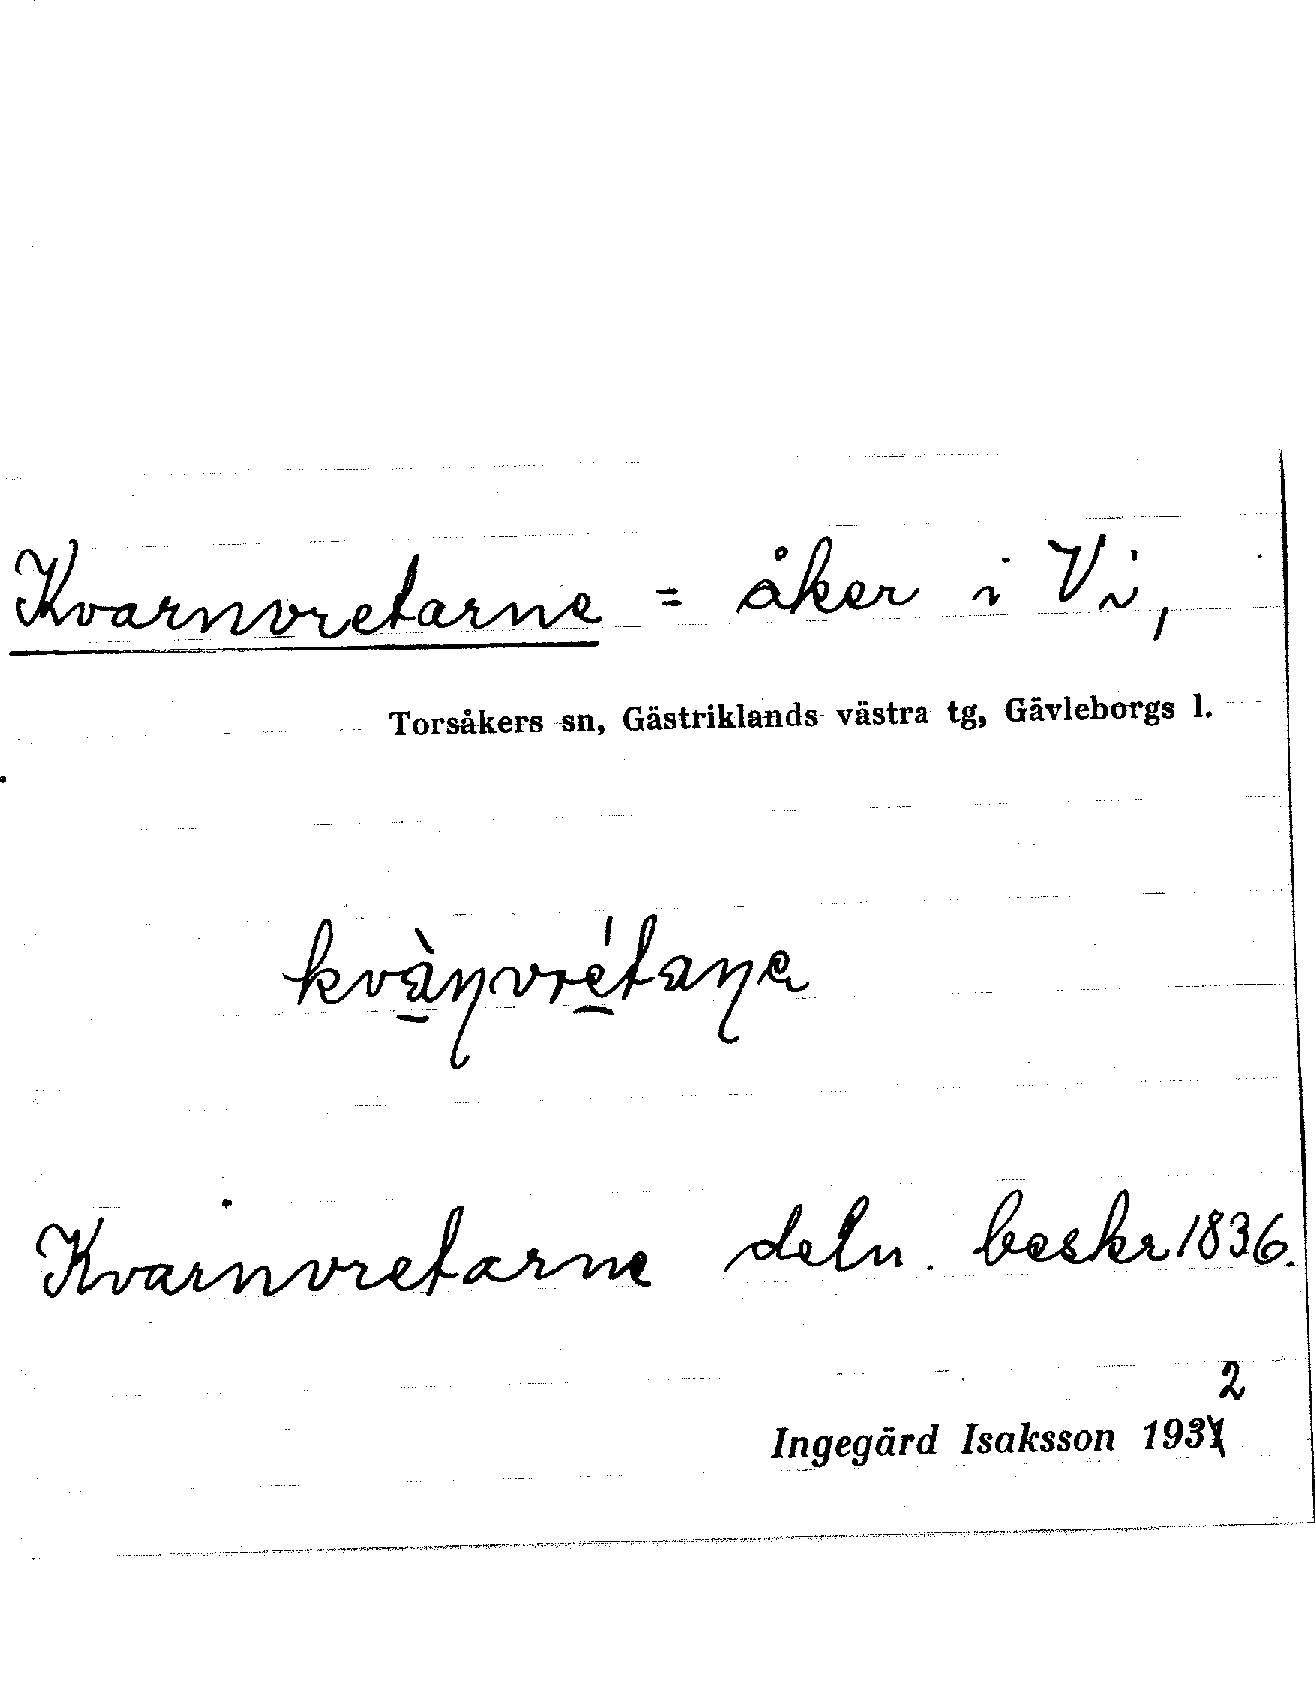 Kvarnvretarne = åker i Vi,
Torsåkers sn, Gästriklands västra tg, Gävleborgs l.
kvà̱ɳvré̱taɳe
Kvarnvretarne deln. beskr 1836.
2
Ingegärd Isaksson 1931